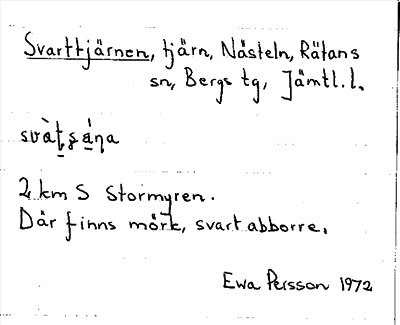 Svarttjärnen, tjärn, Nästeln, Rätans
sn, Bergs tg, Jämtl.l.
svàt̬ṣá̱ṇa
2 km S Stormyren.
Där finns mörk, svart abborre.
Ewa Persson 1972